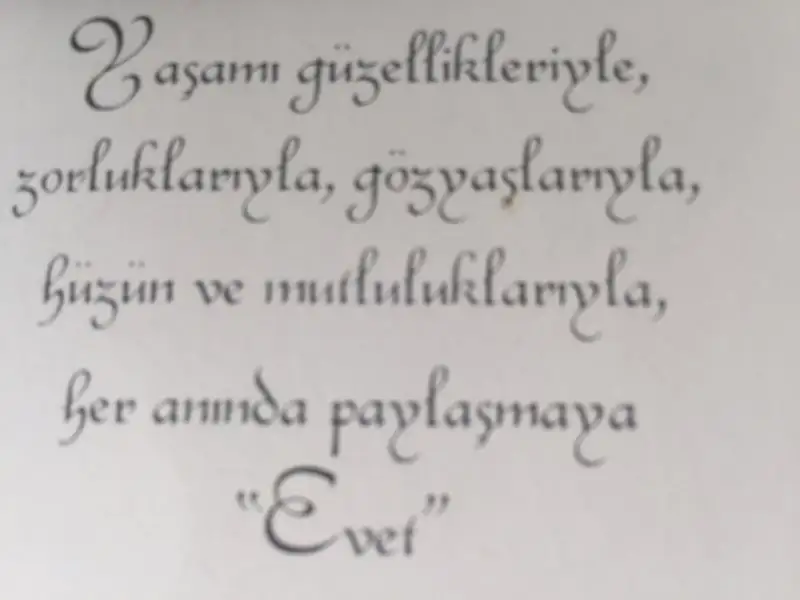 Yaşamı güzellikleriyle,
zorluklarıyla, gözyaşlarıyla,
hüzün ve mutluluklarıyla,
her anında paylaşmaya
“Evet”